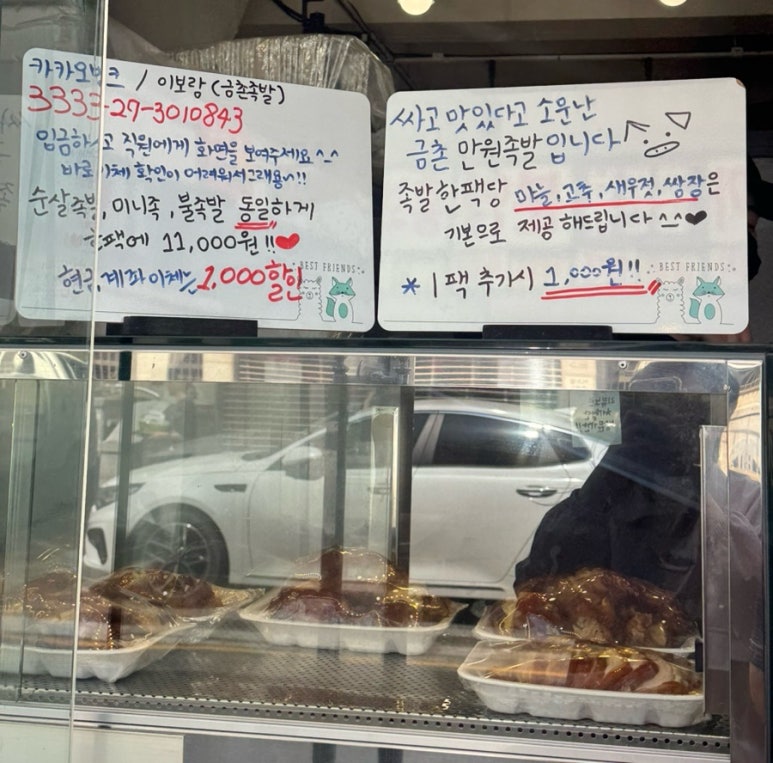 카카오뱅크 / 이보람 (금촌족발)
3333-27-3010843
입금하시고 직원에게 화면을 보여주세요^_^
바로 이체 확인이 어려워서 그래용~!!
순살족발, 미니족, 불족발 동일하게
한팩에 11,000원!!
현금, 계좌이체는 1,000할인
BEST FRIENDS
싸고 맛있다고 소문난
금촌 만원족발입니다
족발 한팩당 마늘, 고추, 새우젓, 쌈장은
기본으로 제공 해드립니다^^
* 1팩 추가시 1,000원!!
BEST FRIENDS